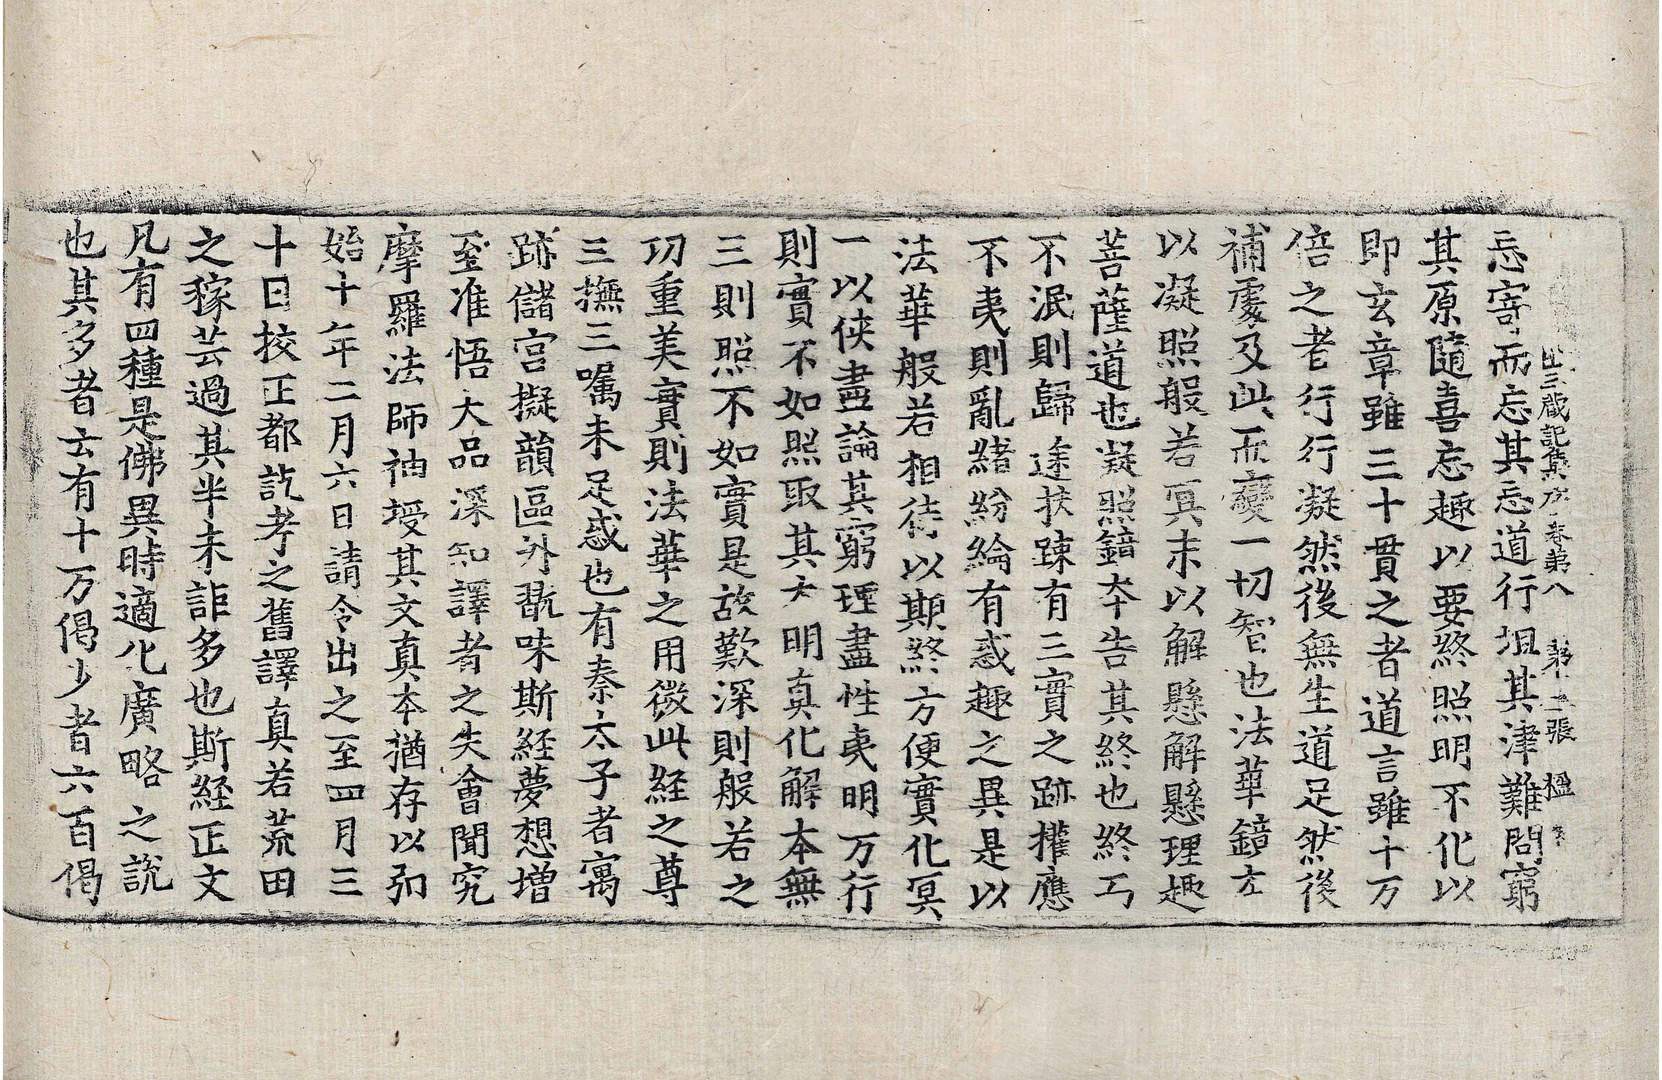 出三藏記集序卷第八　第十二張　楹
忘寄而忘其忘道行坦其津難問窮
其原隨喜忘趣以要終照明不化以
即玄章雖三十貫之者道言雖十万
倍之者行行凝然後無生道足然後
補處及此而變一切智也法華鏡本
以凝照般若冥末以解懸解懸理趣
菩薩道也凝照鏡本告其終也終而
不泯則歸途扶踈有三實之跡權應
不夷則亂緒紛綸有惑趣之異是以
法華般若相待以期終方便實化冥
一以俠盡論其窮理盡性夷明万行
則實不如照取其大明真化解本無
三則照不如實是故歎深則般若之
功重美實則法華之用微此経之尊
三撫三囑未足惑也有秦太子者寓
跡儲宮擬韻區外翫味斯経夢想增
至准悟大品深知譯者之失會聞究
摩羅法師神授其文真本猶存以弘
始十年二月六日請令出之至四月三
十日挍正都訖考之舊譯真若荒田
之稼芸過其半未詎多也斯経正文
凡有四種是佛異時適化廣略之說
也其多者云有十万偈少者六百偈